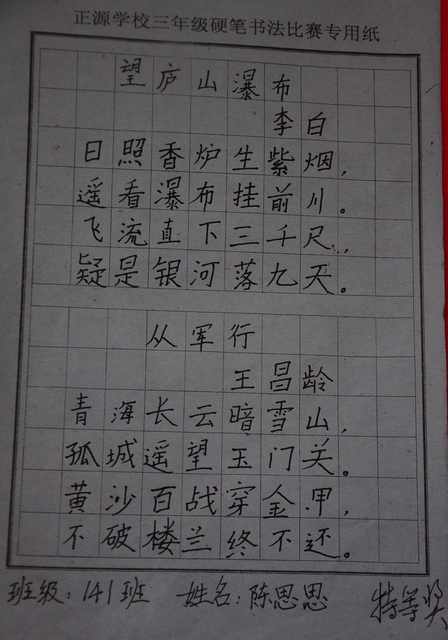 正源学校三年级硬笔书法比赛专用纸
望庐山瀑布
李白
日照香炉生紫烟,
遥看瀑布挂前川。
飞流直下三千尺,
疑是银河落九天。
从军行
王昌龄
青海长云暗雪山,
孤城遥望玉门关。
黄沙百战穿金甲,
不破楼兰终不还。
班级:141班 姓名:陈思思 特等奖